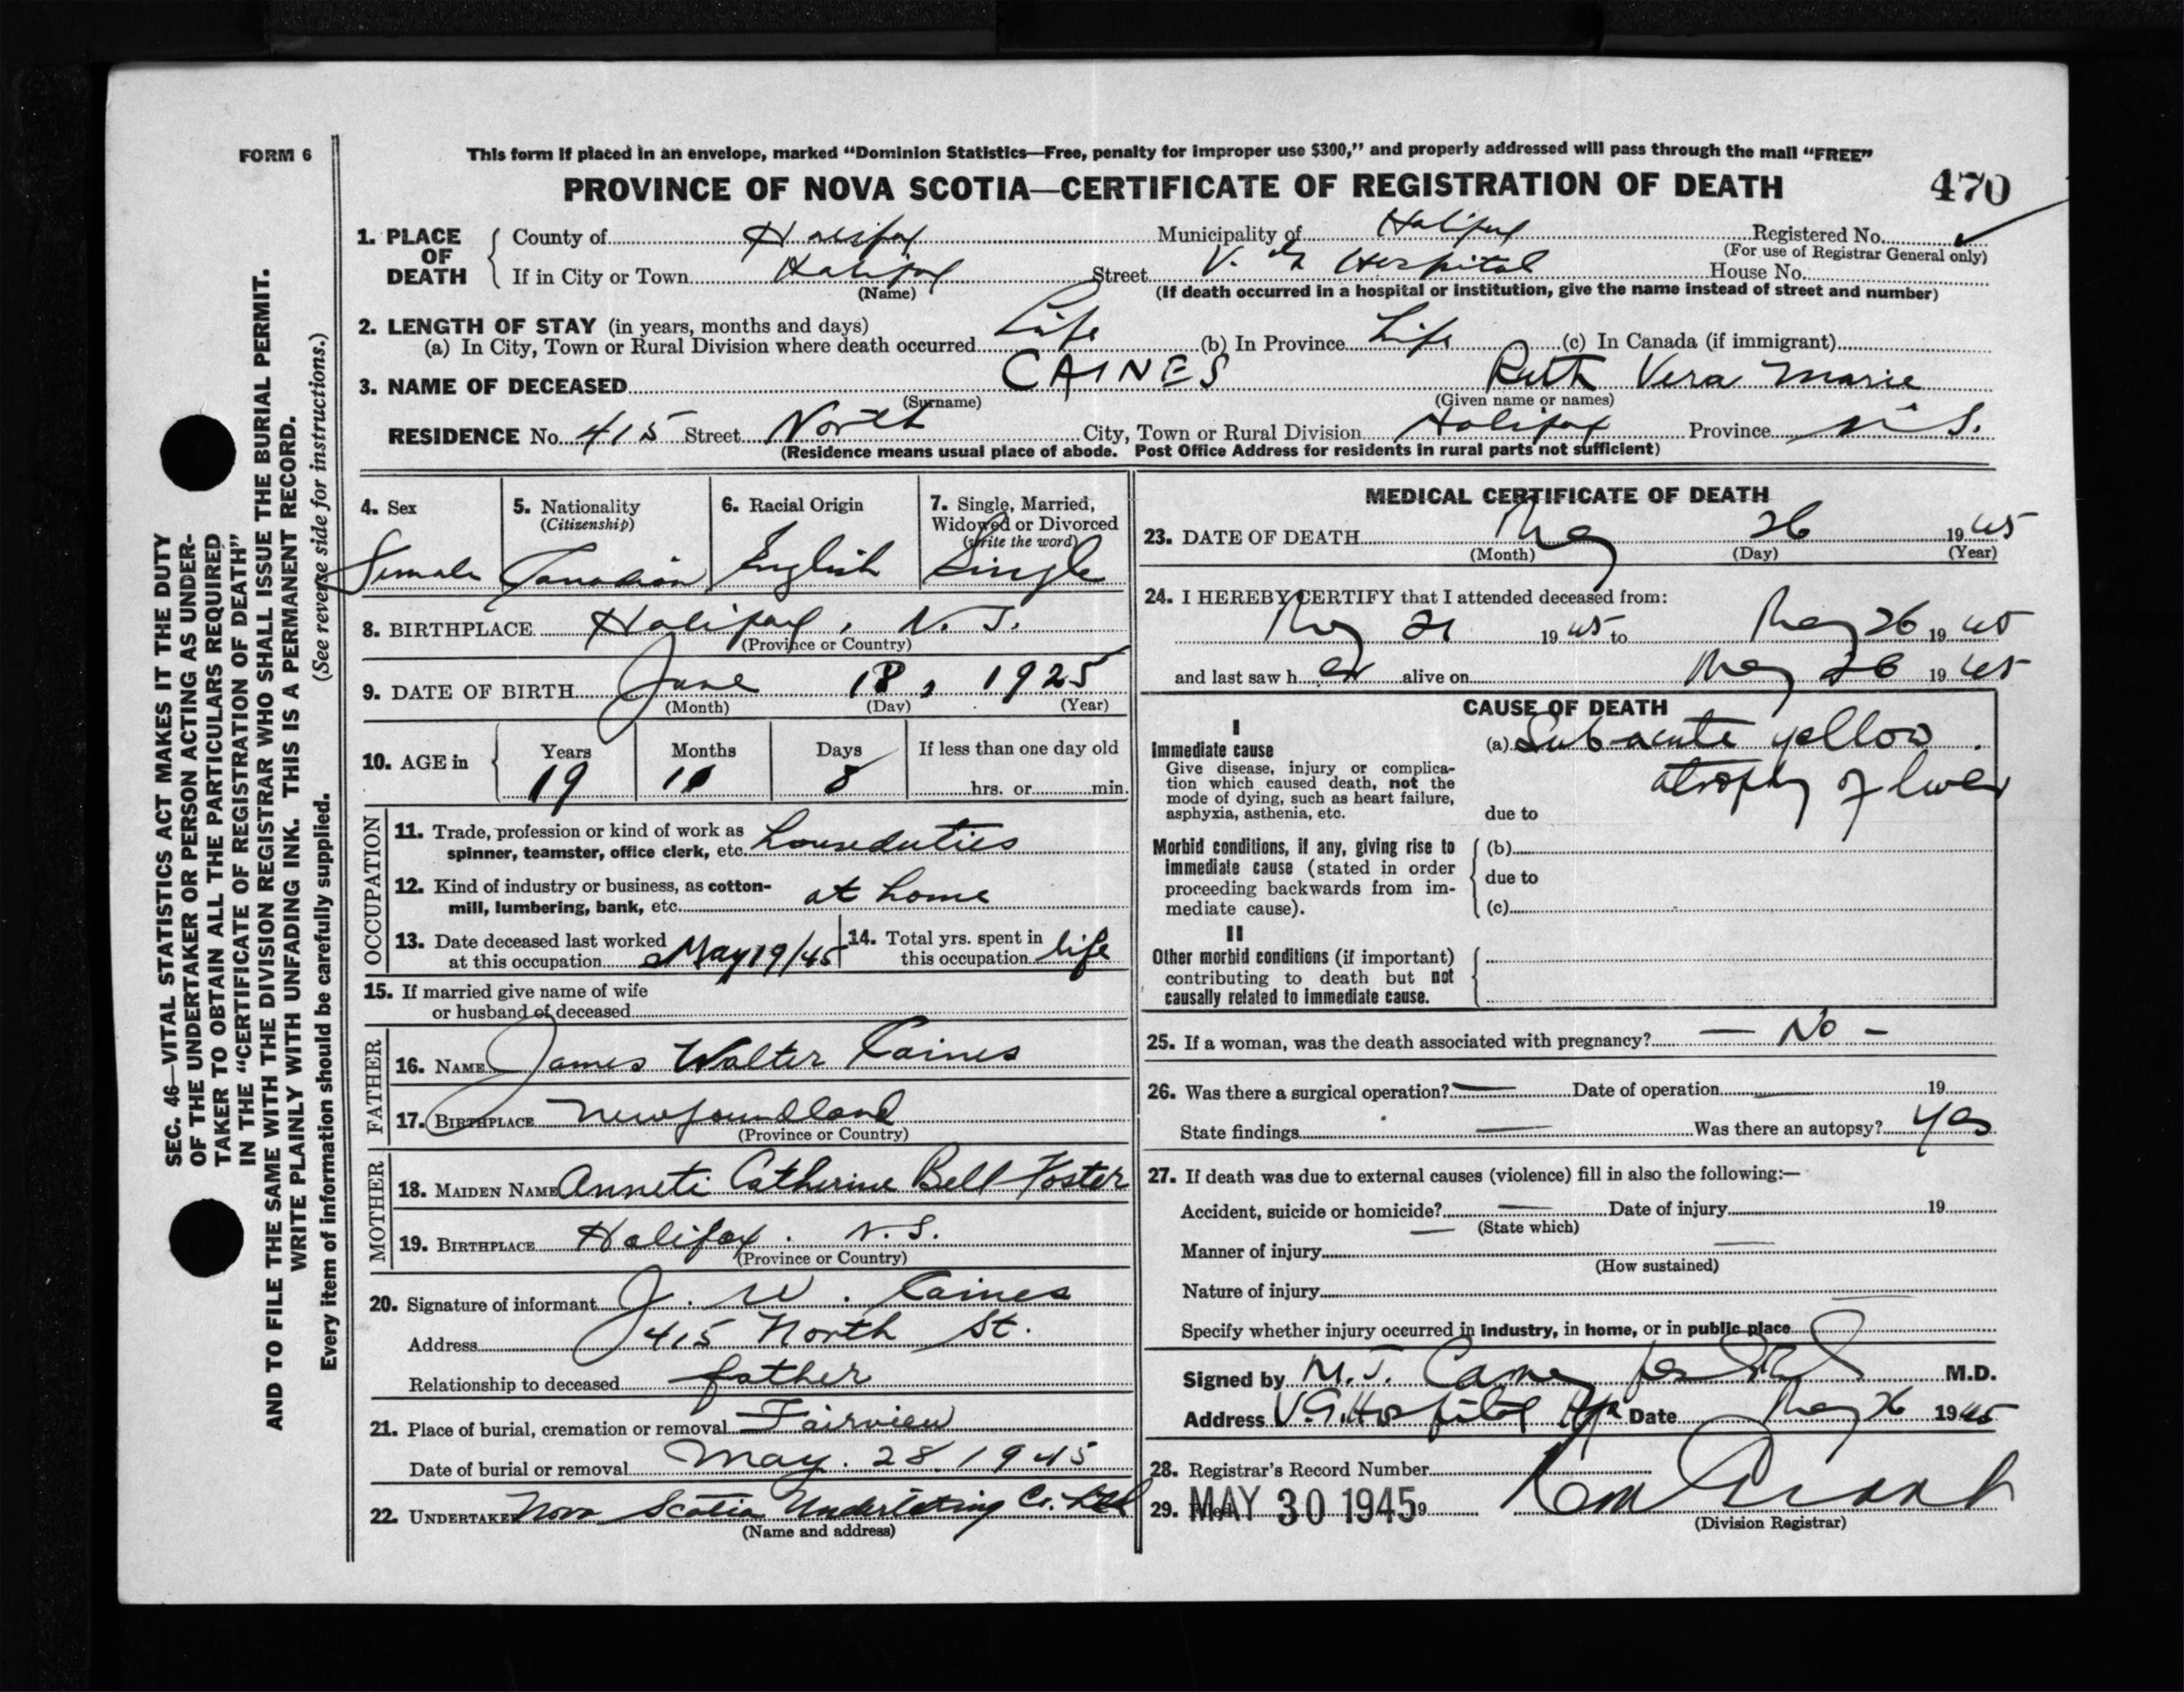 FORM 6
This form if placed in an envelope, marked “Dominion Statistics—Free, penalty for improper use $300,” and properly addressed will pass through the mail “FREE”
PROVINCE OF NOVA SCOTIA—CERTIFICATE OF REGISTRATION OF DEATH 470
1. PLACE OF DEATH County of Halifax Municipality of Halifax Registered No.
(For use of Registrar General only)
If in City or Town Halifax Street V. G. Hospital House No.
(Name) (If death occurred in a hospital or institution, give the name instead of street and number)
2. LENGTH OF STAY (in years, months and days)
(a) In City, Town or Rural Division where death occurred Life (b) In Province Life (c) In Canada (if immigrant)
3. NAME OF DECEASED CAINES Ruth Vera Marie
(Surname) (Given name or names)
RESIDENCE No. 415 Street North City, Town or Rural Division Halifax Province N S.
(Residence means usual place of abode. Post Office Address for residents in rural parts not sufficient)
4. Sex 5. Nationality (Citizenship) 6. Racial Origin 7. Single, Married, Widowed or Divorced (write the word)
Female Canadian English Single
8. BIRTHPLACE Halifax, N. S.
(Province or Country)
9. DATE OF BIRTH June 18, 1925
(Month) (Day) (Year)
10. AGE in Years Months Days If less than one day old
19 11 8 hrs. or min.
OCCUPATION
11. Trade, profession or kind of work as
spinner, teamster, office clerk, etc. houseduties
12. Kind of industry or business, as cotton-
mill, lumbering, bank, etc. at home
13. Date deceased last worked
at this occupation May 19/45
14. Total yrs. spent in
this occupation life
15. If married give name of wife
or husband of deceased
FATHER
16. NAME James Walter Caines
17. BIRTHPLACE Newfoundland
(Province or Country)
MOTHER
18. MAIDEN NAME Anneti Catherine Bell Foster
19. BIRTHPLACE Halifax. N.S.
(Province or Country)
20. Signature of informant J. W. Caines
Address 415 North St.
Relationship to deceased father
21. Place of burial, cremation or removal Fairview
Date of burial or removal May. 28. 1945
22. UNDERTAKER Nova Scotia Undertaking Co. Ltd
(Name and address)
MEDICAL CERTIFICATE OF DEATH
23. DATE OF DEATH May 26 1945
(Month) (Day) (Year)
24. I HEREBY CERTIFY that I attended deceased from:
May 21 1945 to May 26 1945
and last saw her alive on May 26 1945
CAUSE OF DEATH
I
Immediate cause
Give disease, injury or complica-
tion which caused death, not the
mode of dying, such as heart failure,
asphyxia, asthenia, etc.
(a) Subacute yellow
atrophy of liver
due to
Morbid conditions, if any, giving rise to
immediate cause (stated in order
proceeding backwards from im-
mediate cause).
(b)
due to
(c)
II
Other morbid conditions (if important)
contributing to death but not
causally related to immediate cause.
25. If a woman, was the death associated with pregnancy? — No -
26. Was there a surgical operation? — Date of operation — 19
State findings — Was there an autopsy? Yes
27. If death was due to external causes (violence) fill in also the following:—
Accident, suicide or homicide? — Date of injury 19
(State which)
Manner of injury
(How sustained)
Nature of injury
Specify whether injury occurred in industry, in home, or in public place
Signed by M.J. M.D.
Address V.G. Hospital Hfx Date May 26 1945
28. Registrar's Record Number
29. Filed MAY 30 1945 19
(Division Registrar)
SEC. 46—VITAL STATISTICS ACT MAKES IT THE DUTY
OF THE UNDERTAKER OR PERSON ACTING AS UNDER-
TAKER TO OBTAIN ALL THE PARTICULARS REQUIRED
IN THE “CERTIFICATE OF REGISTRATION OF DEATH”
AND TO FILE THE SAME WITH THE DIVISION REGISTRAR WHO SHALL ISSUE THE BURIAL PERMIT.
WRITE PLAINLY WITH UNFADING INK. THIS IS A PERMANENT RECORD.
Every item of information should be carefully supplied. (See reverse side for instructions.)